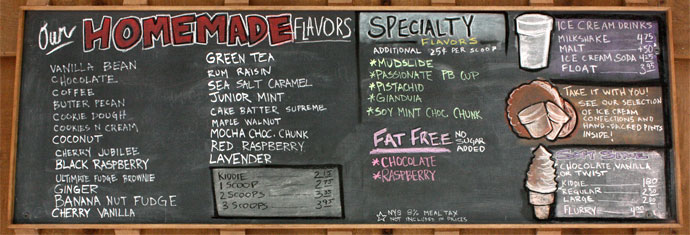 Our HOMEMADE FLAVORS
VANILLA BEAN
CHOCOLATE
COFFEE
BUTTER PECAN
COOKIE DOUGH
COOKIES N CREAM
COCONUT
CHERRY JUBILEE
BLACK RASPBERRY
ULTIMATE FUDGE BROWNIE
GINGER
BANANA NUT FUDGE
CHERRY VANILLA
GREEN TEA
RUM RAISIN
SEA SALT CARAMEL
JUNIOR MINT
CAKE BATTER SUPREME
MAPLE WALNUT
MOCHA CHOC. CHUNK
RED RASPBERRY
LAVENDER
KIDDIE
1 SCOOP
2 SCOOPS
3 SCOOPS 3.95
SPECIALTY
FLAVORS
ADDITIONAL 25¢ PER SCOOP
*MUDSLIDE
*PASSIONATE PB CUP
*PISTACHIO
*GIANDUIA
*SOY MINT CHOC. CHUNK
FAT FREE NO SUGAR ADDED
*CHOCOLATE
*RASPBERRY
☆ NYS 8% MEAL TAX
NOT INCLUDED IN PRICES
ICE CREAM DRINKS
MILKSHAKE 4.75
MALT +50¢
ICE CREAM SODA
FLOAT 3.95
TAKE IT WITH YOU!
SEE OUR SELECTION
OF ICE CREAM
CONFECTIONS AND
HAND-PACKED PINTS
INSIDE!
CHOCOLATE, VANILLA
OR TWIST
KIDDIE 1.90
REGULAR
LARGE
FLURRY 4.00